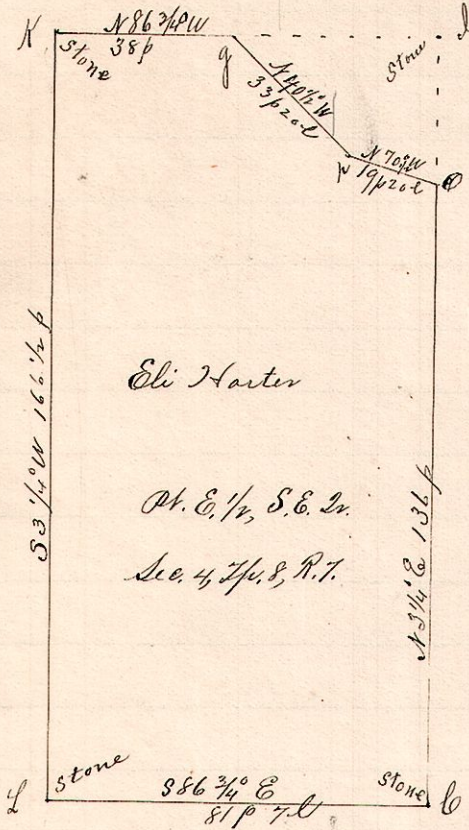 K
N 86 3/4° W
38 p
Stone
g
Stone
N 40 1/2° W
33 p 20 l
N 70 1/2° W
19 p 20 l
S 3 1/4° W 166 1/2 p
Eli Harter
Pt. E. 1/2, S.E. Qr.
Sec. 4, Tp. 8, R. 7.
N 3 1/4° E 136 p
L
Stone
S 86 3/4° E
81 p 7 l
Stone